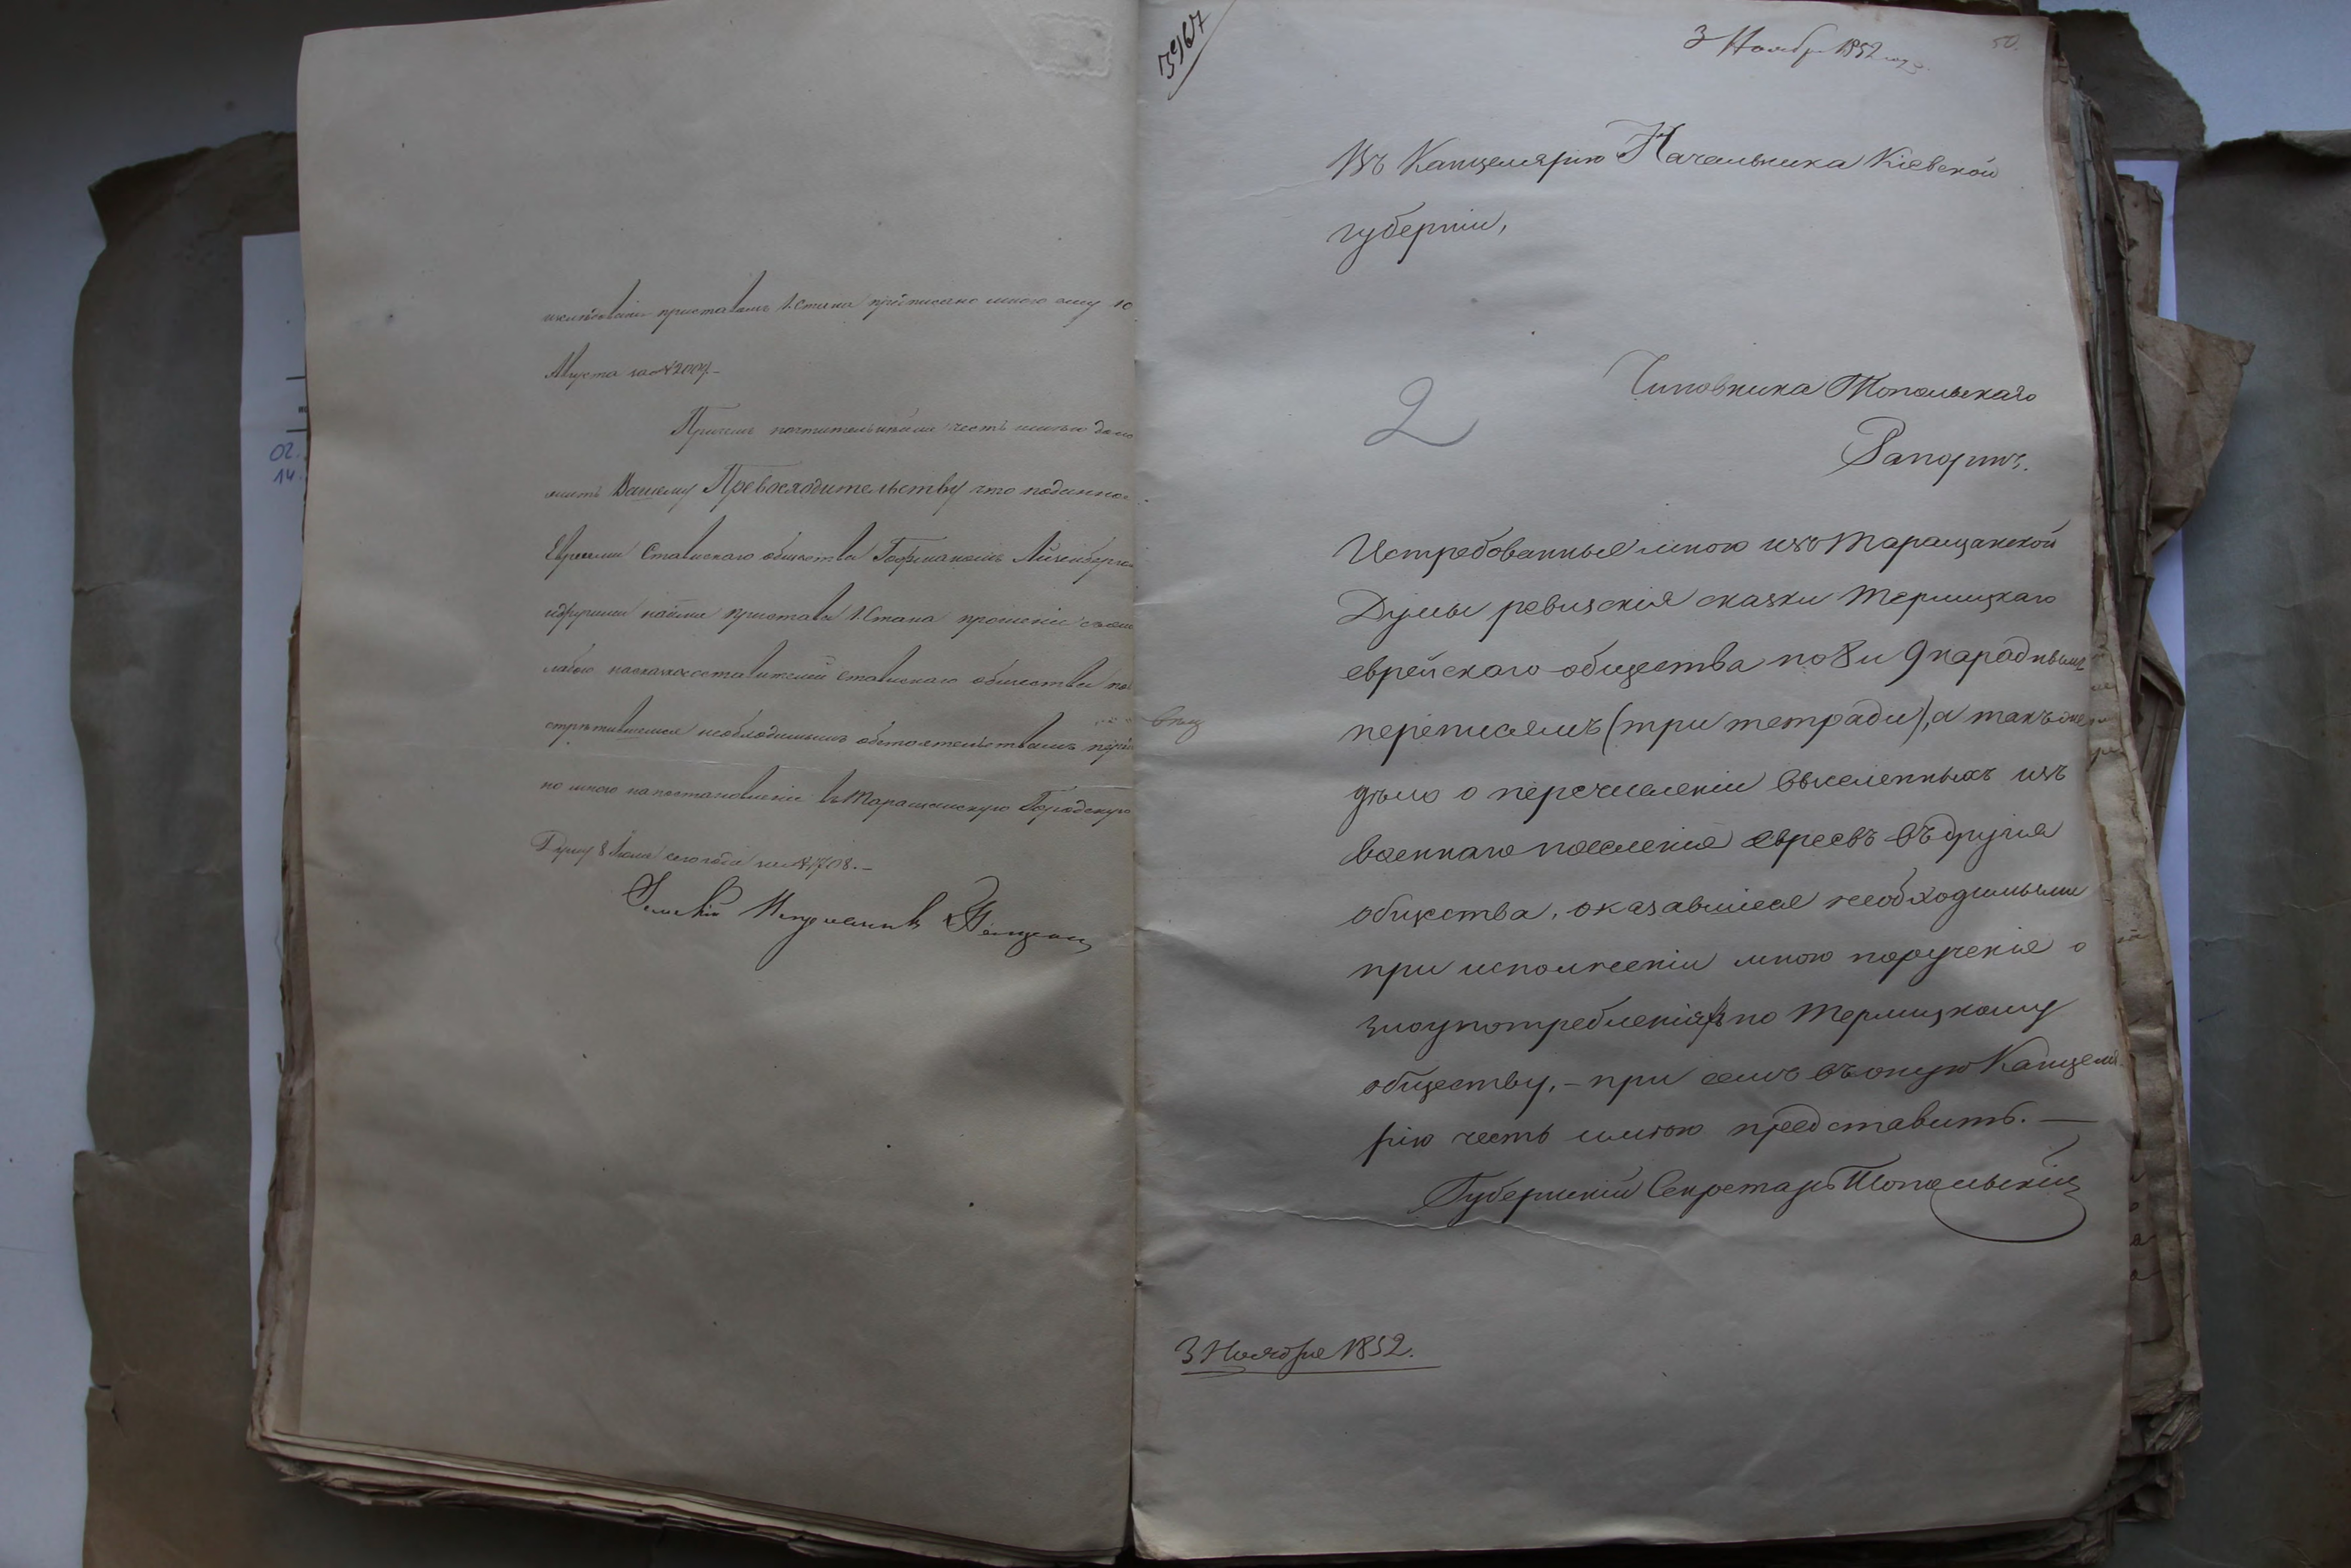 приставомъ 1. Стана предписано мною ему 10
Августа за №
Причемъ почтительнейше честь имею доло
жить Вашему Превосходительству что поданное
Евреями Ставискаго общества Гофманомъ
и другими на имя Пристава 1. Стана прошение
Ставискаго общества
необходимымъ обстоятельствамъ
но мною на постановление въ Таращанскую Городскую
Думу 8 Июля сего года за № 1708.-
Земский Исправникъ
3967
3 Ноября 1852 года.
50.
Въ Канцелярію Начальника Кіевской
губерніи,
2
Чиновника Топольскаго
Рапортъ.
Истребованные мною изъ Таращанской
Думы ревизскія сказки Термицкаго
еврейскаго общества по 8 и 9 народнымъ
переписямъ (три тетради), а такъ же
дѣло о перечисленіи выселенныхъ изъ
военнаго поселенія евреевъ въ другія
общества, оказавшіеся необходимыми
при исполненіи мною порученія о
злоупотребленіяхъ по Термицкому
обществу, - при семъ въ оную Канцеля
рію честь имѣю представить. —
Губернскій Секретарь Топольскій
3 Ноября 1852.